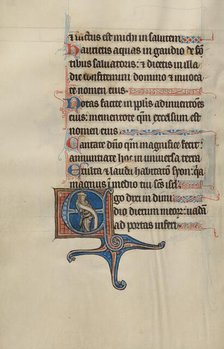 et factus est michi in salutem
Haurietis aquas in gaudio de fon
tibus saluatoris: et dicetis in illa
die confitemini domino et inuoca
te nomen eius
Notas facite in pplis adinuentoes
eius: mementote qm excelsum est
nomen eius
Cantate dno qm magnifice fecit:
annuntiate hoc in uniuersa terra
Exulta et lauda habitatio syon: qa
magnus i medio tui scs isrl
Ego dixi in dimi
dio dierum meor: uada
ad portas inferi